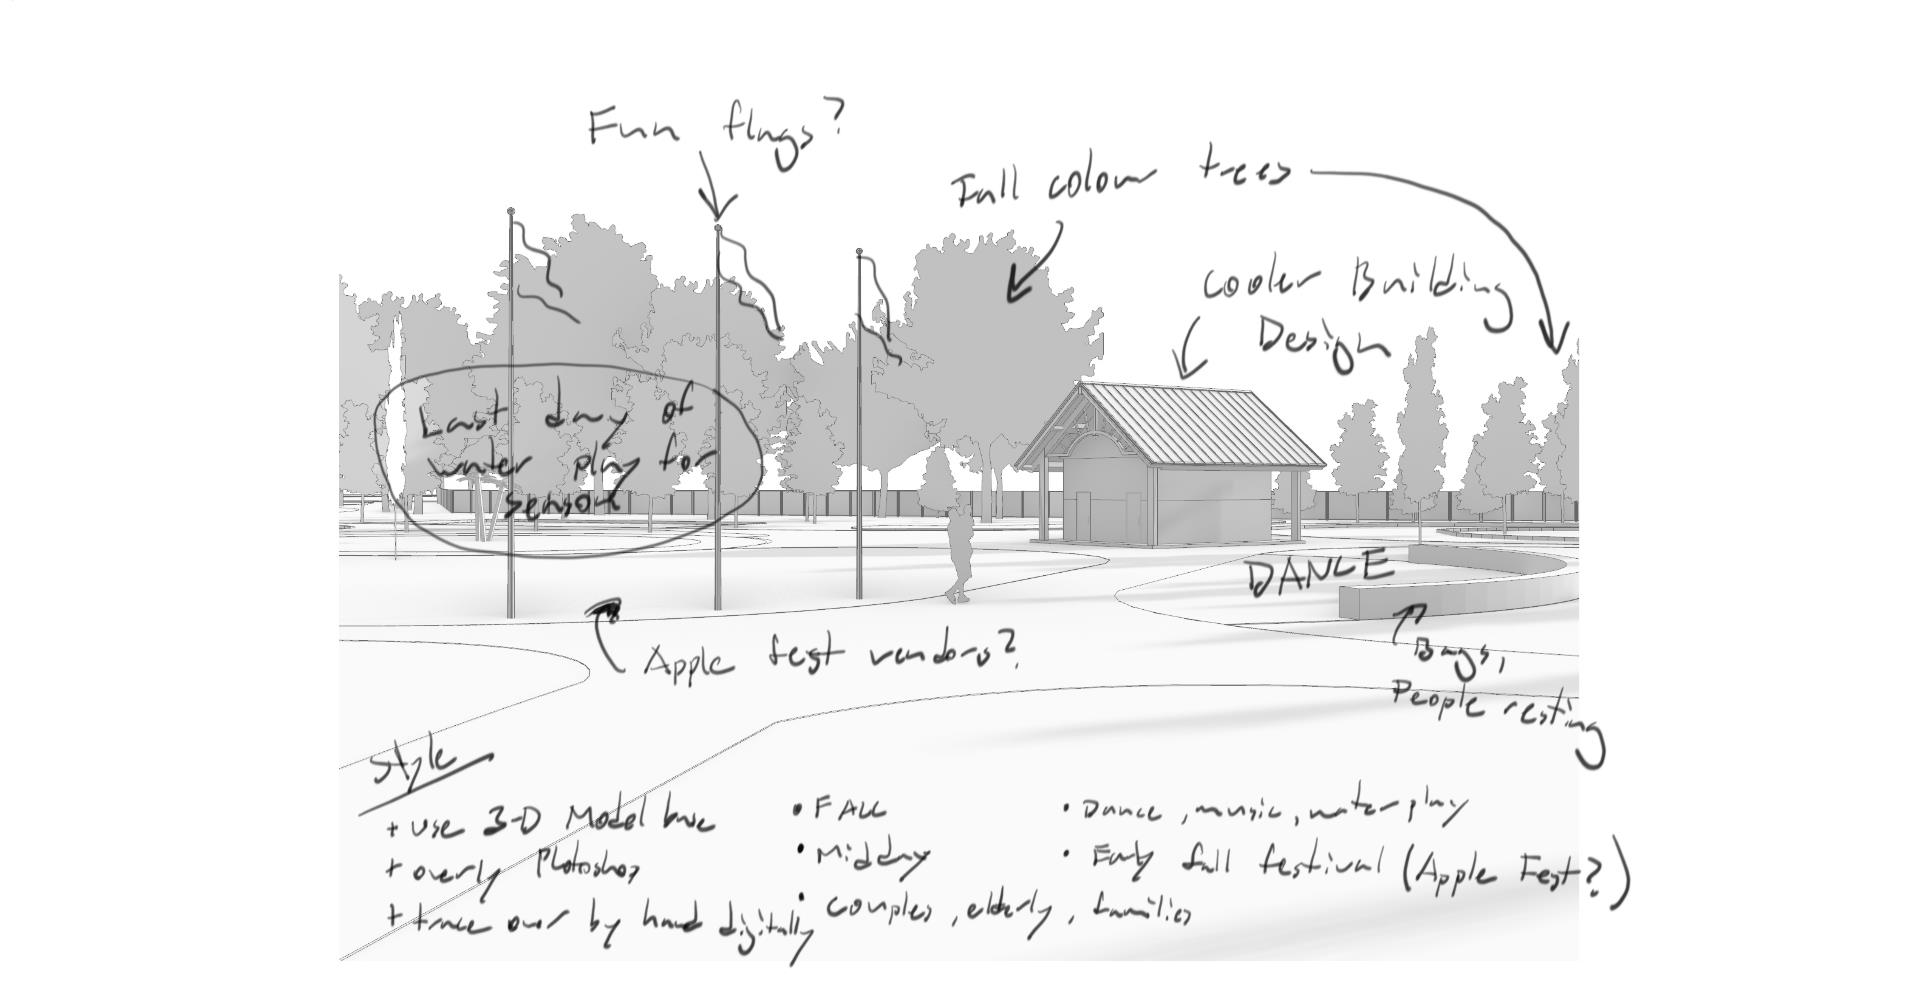 Fun flags?
Fall colour trees
Cooler Building
Design
Last day of
water play for
season
DANCE
Apple fest vendors?
Bags,
People resting
Style
+ use 3-D Model base
+ overly Photoshop
+ trace over by hand digitally
• FALL
• Midday
• couples, elderly, families
• Dance, music, water play
• Early fall festival (Apple Fest?)